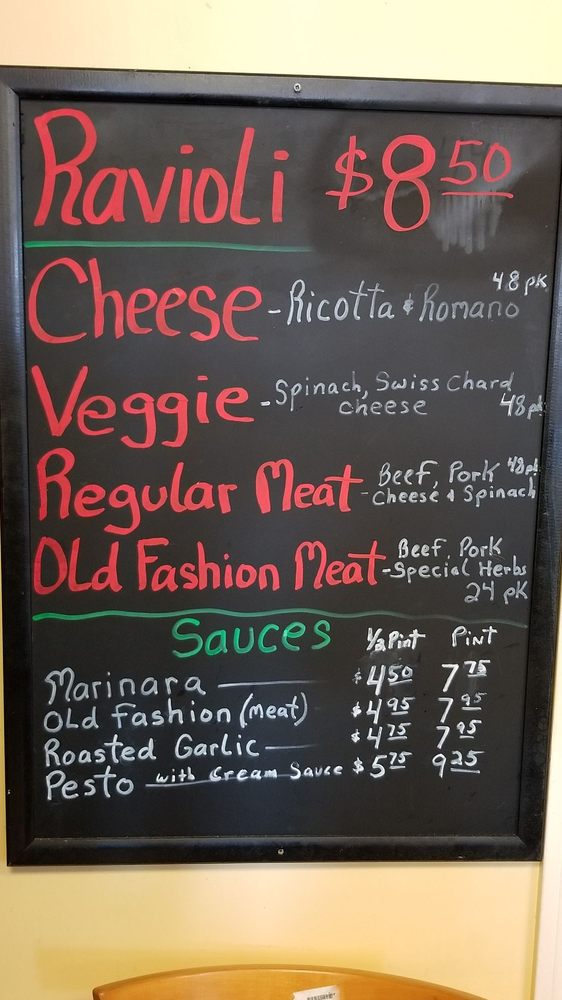 Ravioli $8.50
48 pk
Cheese - Ricotta & Romano
Veggie - Spinach, Swiss Chard
cheese 48 pk
Regular Meat - Beef, Pork 48 pk
Cheese & Spinach
Old Fashion Meat - Beef, Pork
Special Herbs
24 pk
Sauces 1/2 Pint Pint
Marinara $4.50 7.75
Old Fashion (meat) $4.95 7.95
Roasted Garlic $4.75 7.95
Pesto with Cream Sauce $5.75 9.25